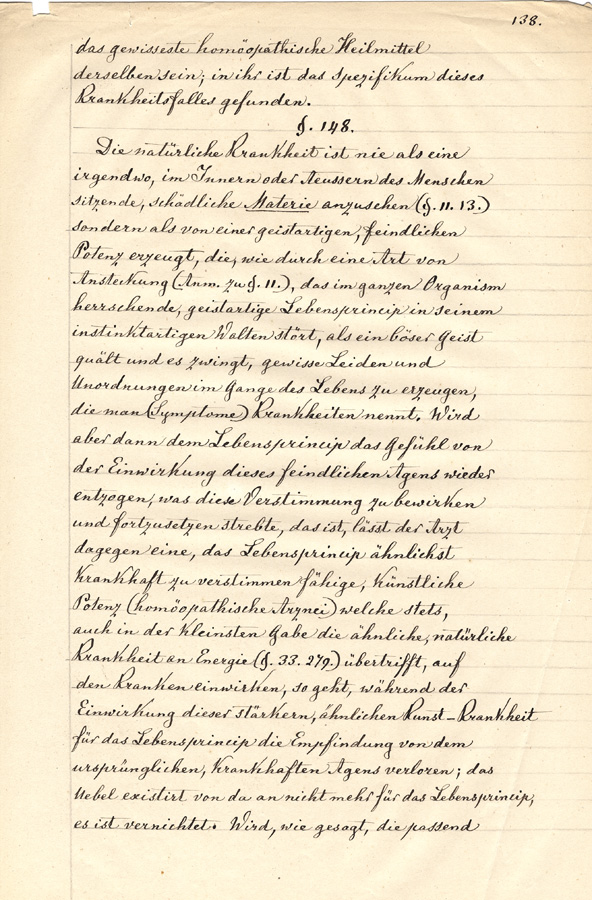 138.
das gewisseste homöopathische Heilmittel
derselben sein; in ihr ist das Spezifikum dieses
Krankheitsfalles gefunden.
§. 148.
Die natürliche Krankheit ist nie als eine
irgendwo, im Innern oder Aeussern des Menschen
sitzende, schädliche Materie anzusehen (§. 11. 13.)
sondern als von einer geistartigen, feindlichen
Potenz erzeugt, die, wie durch eine Art von
Ansteckung (Anm. zu §. 11.), das im ganzen Organism
herrschende, geistartige Lebensprincip in seinem
instinktartigen Walten stört, als ein böser Geist
quält und es zwingt, gewisse Leiden und
Unordnungen im Gange des Lebens zu erzeugen,
die man (Symptome) Krankheiten nennt. Wird
aber dann dem Lebensprincip das Gefühl von
der Einwirkung dieses feindlichen Agens wieder
entzogen, was diese Verstimmung zu bewirken
und fortzusetzen strebte, das ist, lässt der Arzt
dagegen eine, das Lebensprincip ähnlichst
krankhaft zu verstimmen fähige, künstliche
Potenz (homöopathische Arznei) welche stets,
auch in der kleinsten Gabe die ähnliche, natürliche
Krankheit an Energie (§. 33. 279.) übertrifft, auf
den Kranken einwirken, so geht, während der
Einwirkung dieser stärkern, ähnlichen Kunst-Krankheit
für das Lebensprincip die Empfindung von dem
ursprünglichen, krankhaften Agens verloren; das
Uebel existirt von da an nicht mehr für das Lebensprincip,
es ist vernichtet. Wird, wie gesagt, die passend